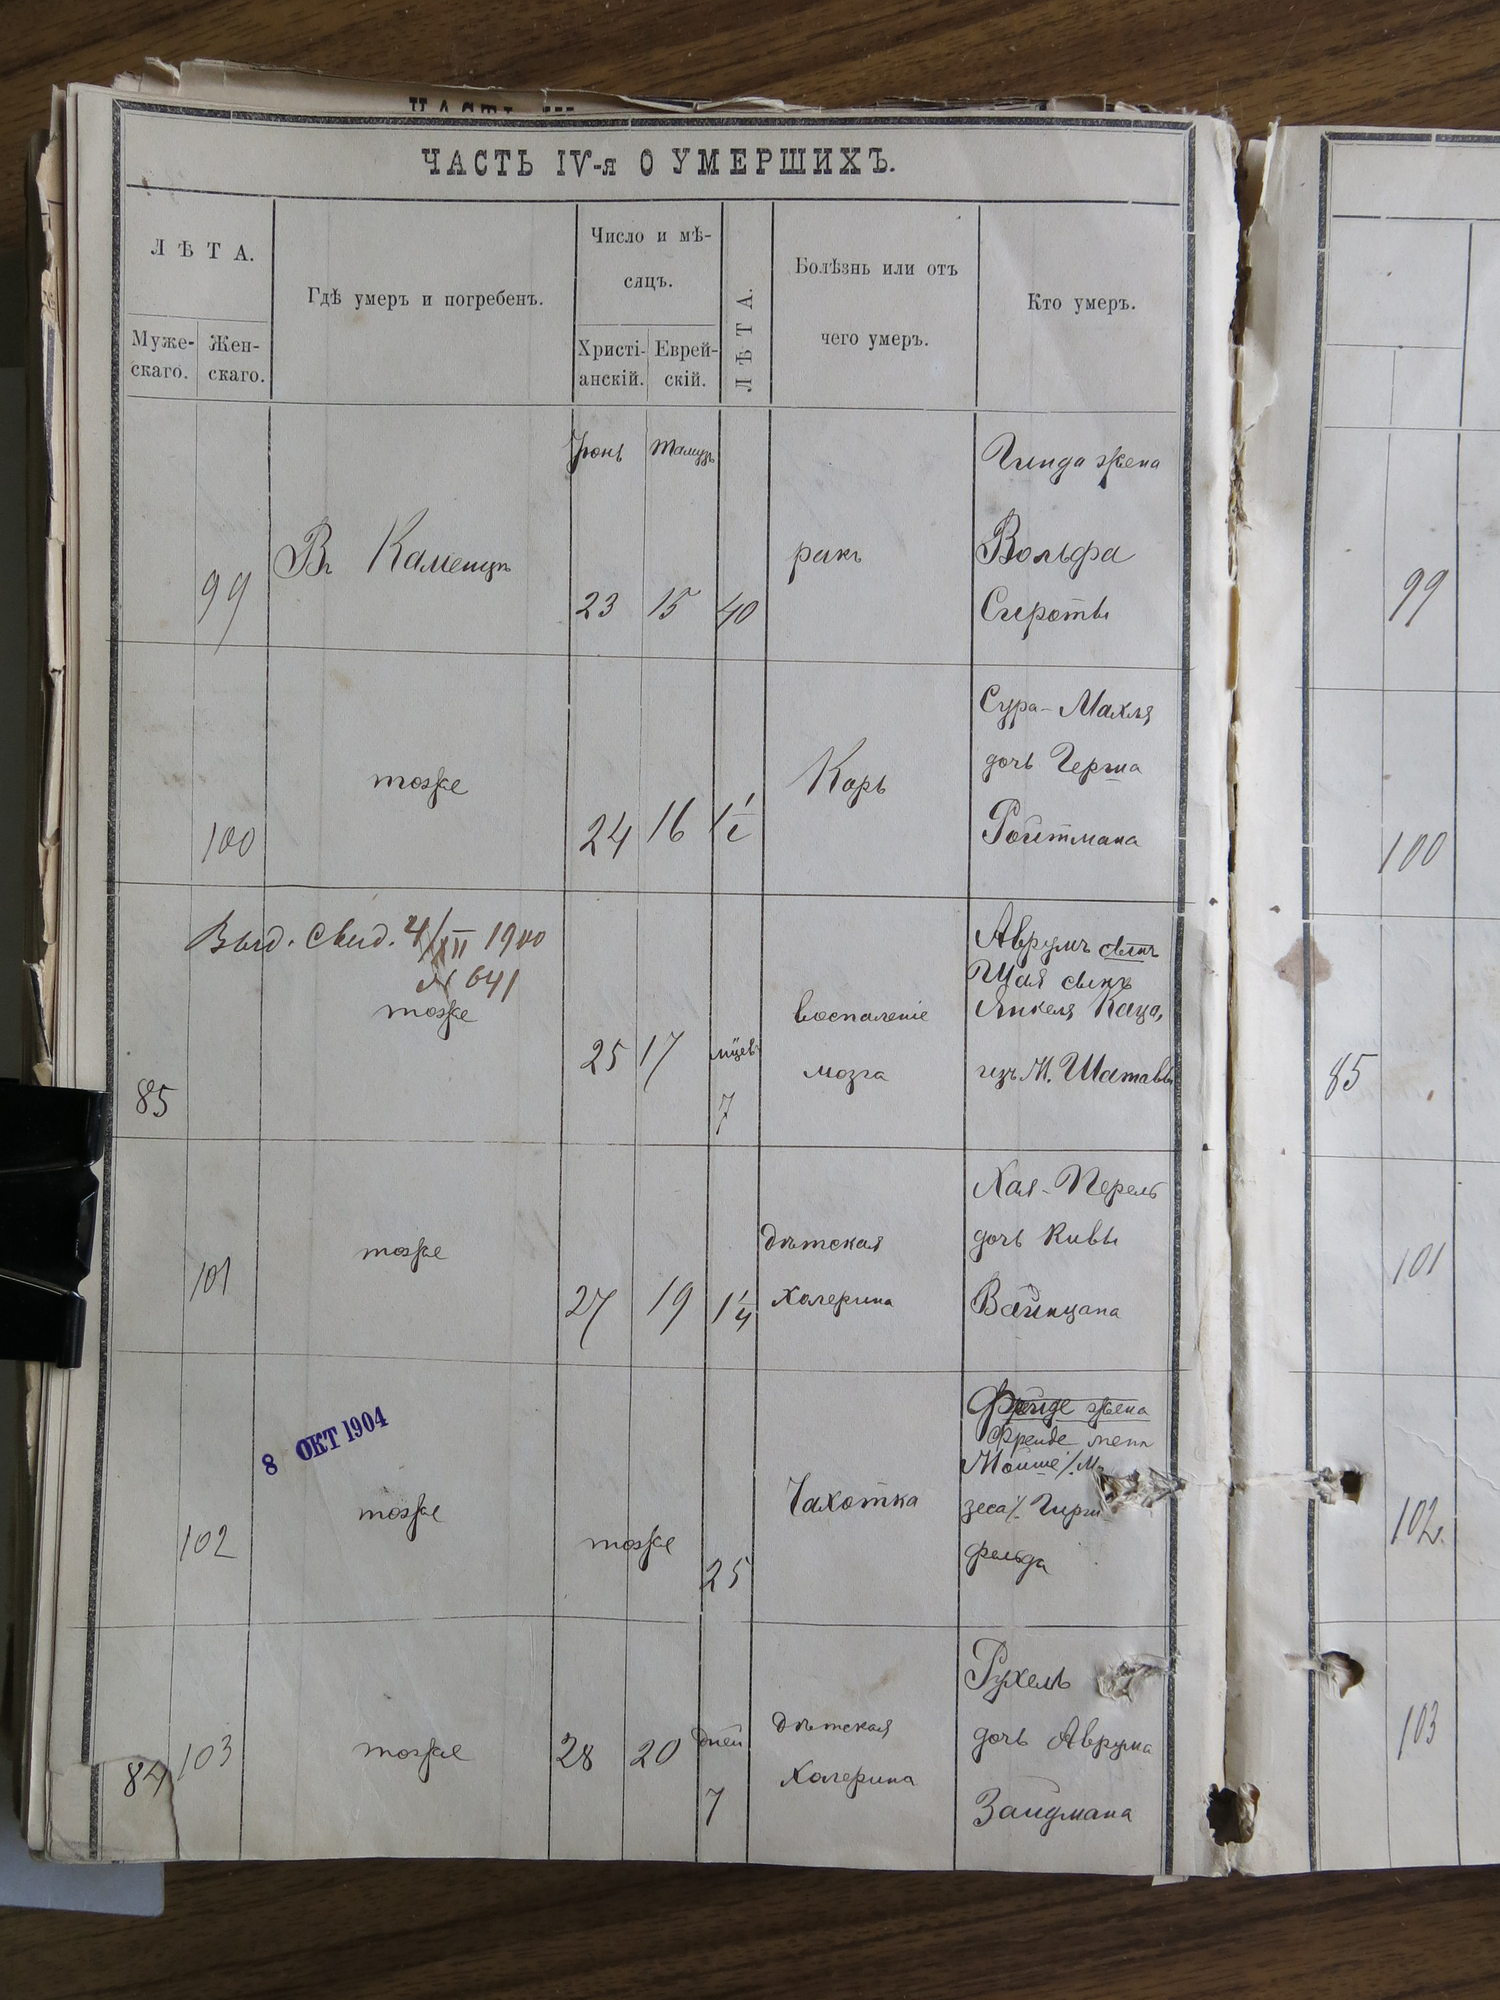 ЧАСТЬ IV-я О УМЕРШИХЪ.
ЛѢТА.
Мужескаго.
Женскаго.
Гдѣ умеръ и погребенъ.
Число и мѣсяцъ.
Христіанскій.
Еврейскій.
ЛѢТА.
Болѣзнь или отъ
чего умеръ.
Кто умеръ.
Іюнь Тамузъ
99
Въ Каменцѣ
23 15 40
ракъ
Гинда жена
Вольфа
Сироты
99
100
тоже
24 16 1½
Корь
Сура-Махля
дочь Герша
Ройтмана
100
Выд. свид. 4/XII 1900
№ 641
85
тоже
25 17
мѣсяц
7
воспаленіе
мозга
Аврумъ
Шая сынъ
Янкеля Каца,
изъ М. Шатавы
85
101
тоже
27 19 1¼
дѣтская
холерина
Хая-Перель
дочь Кивы
Вайнцана
101
8 ОКТ 1904
102
тоже
тоже
25
Чахотка
Фрейде жена
Фрейде
Мойше
зеса/.
фельда
102
84
103
тоже
28 20
дней
7
дѣтская
холерина
Рухель
дочь Аврума
Зайдмана
103